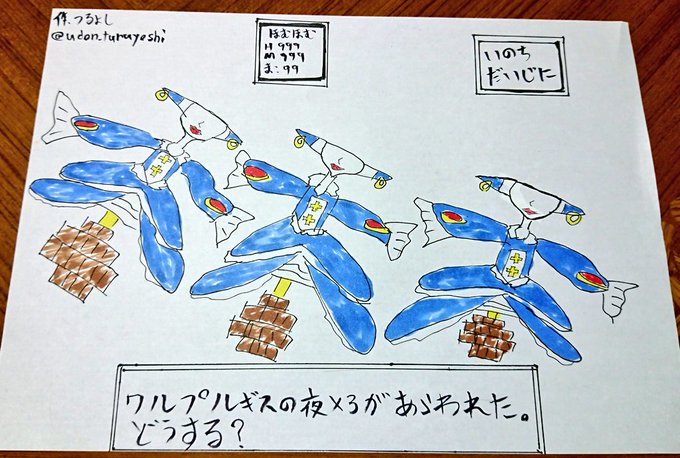 作.つるよし
@udon_turuyoshi
ほむほむ
H 999
M 999
ま:99
いのち
だいじに
ワルプルギスの夜×3があらわれた。
どうする?